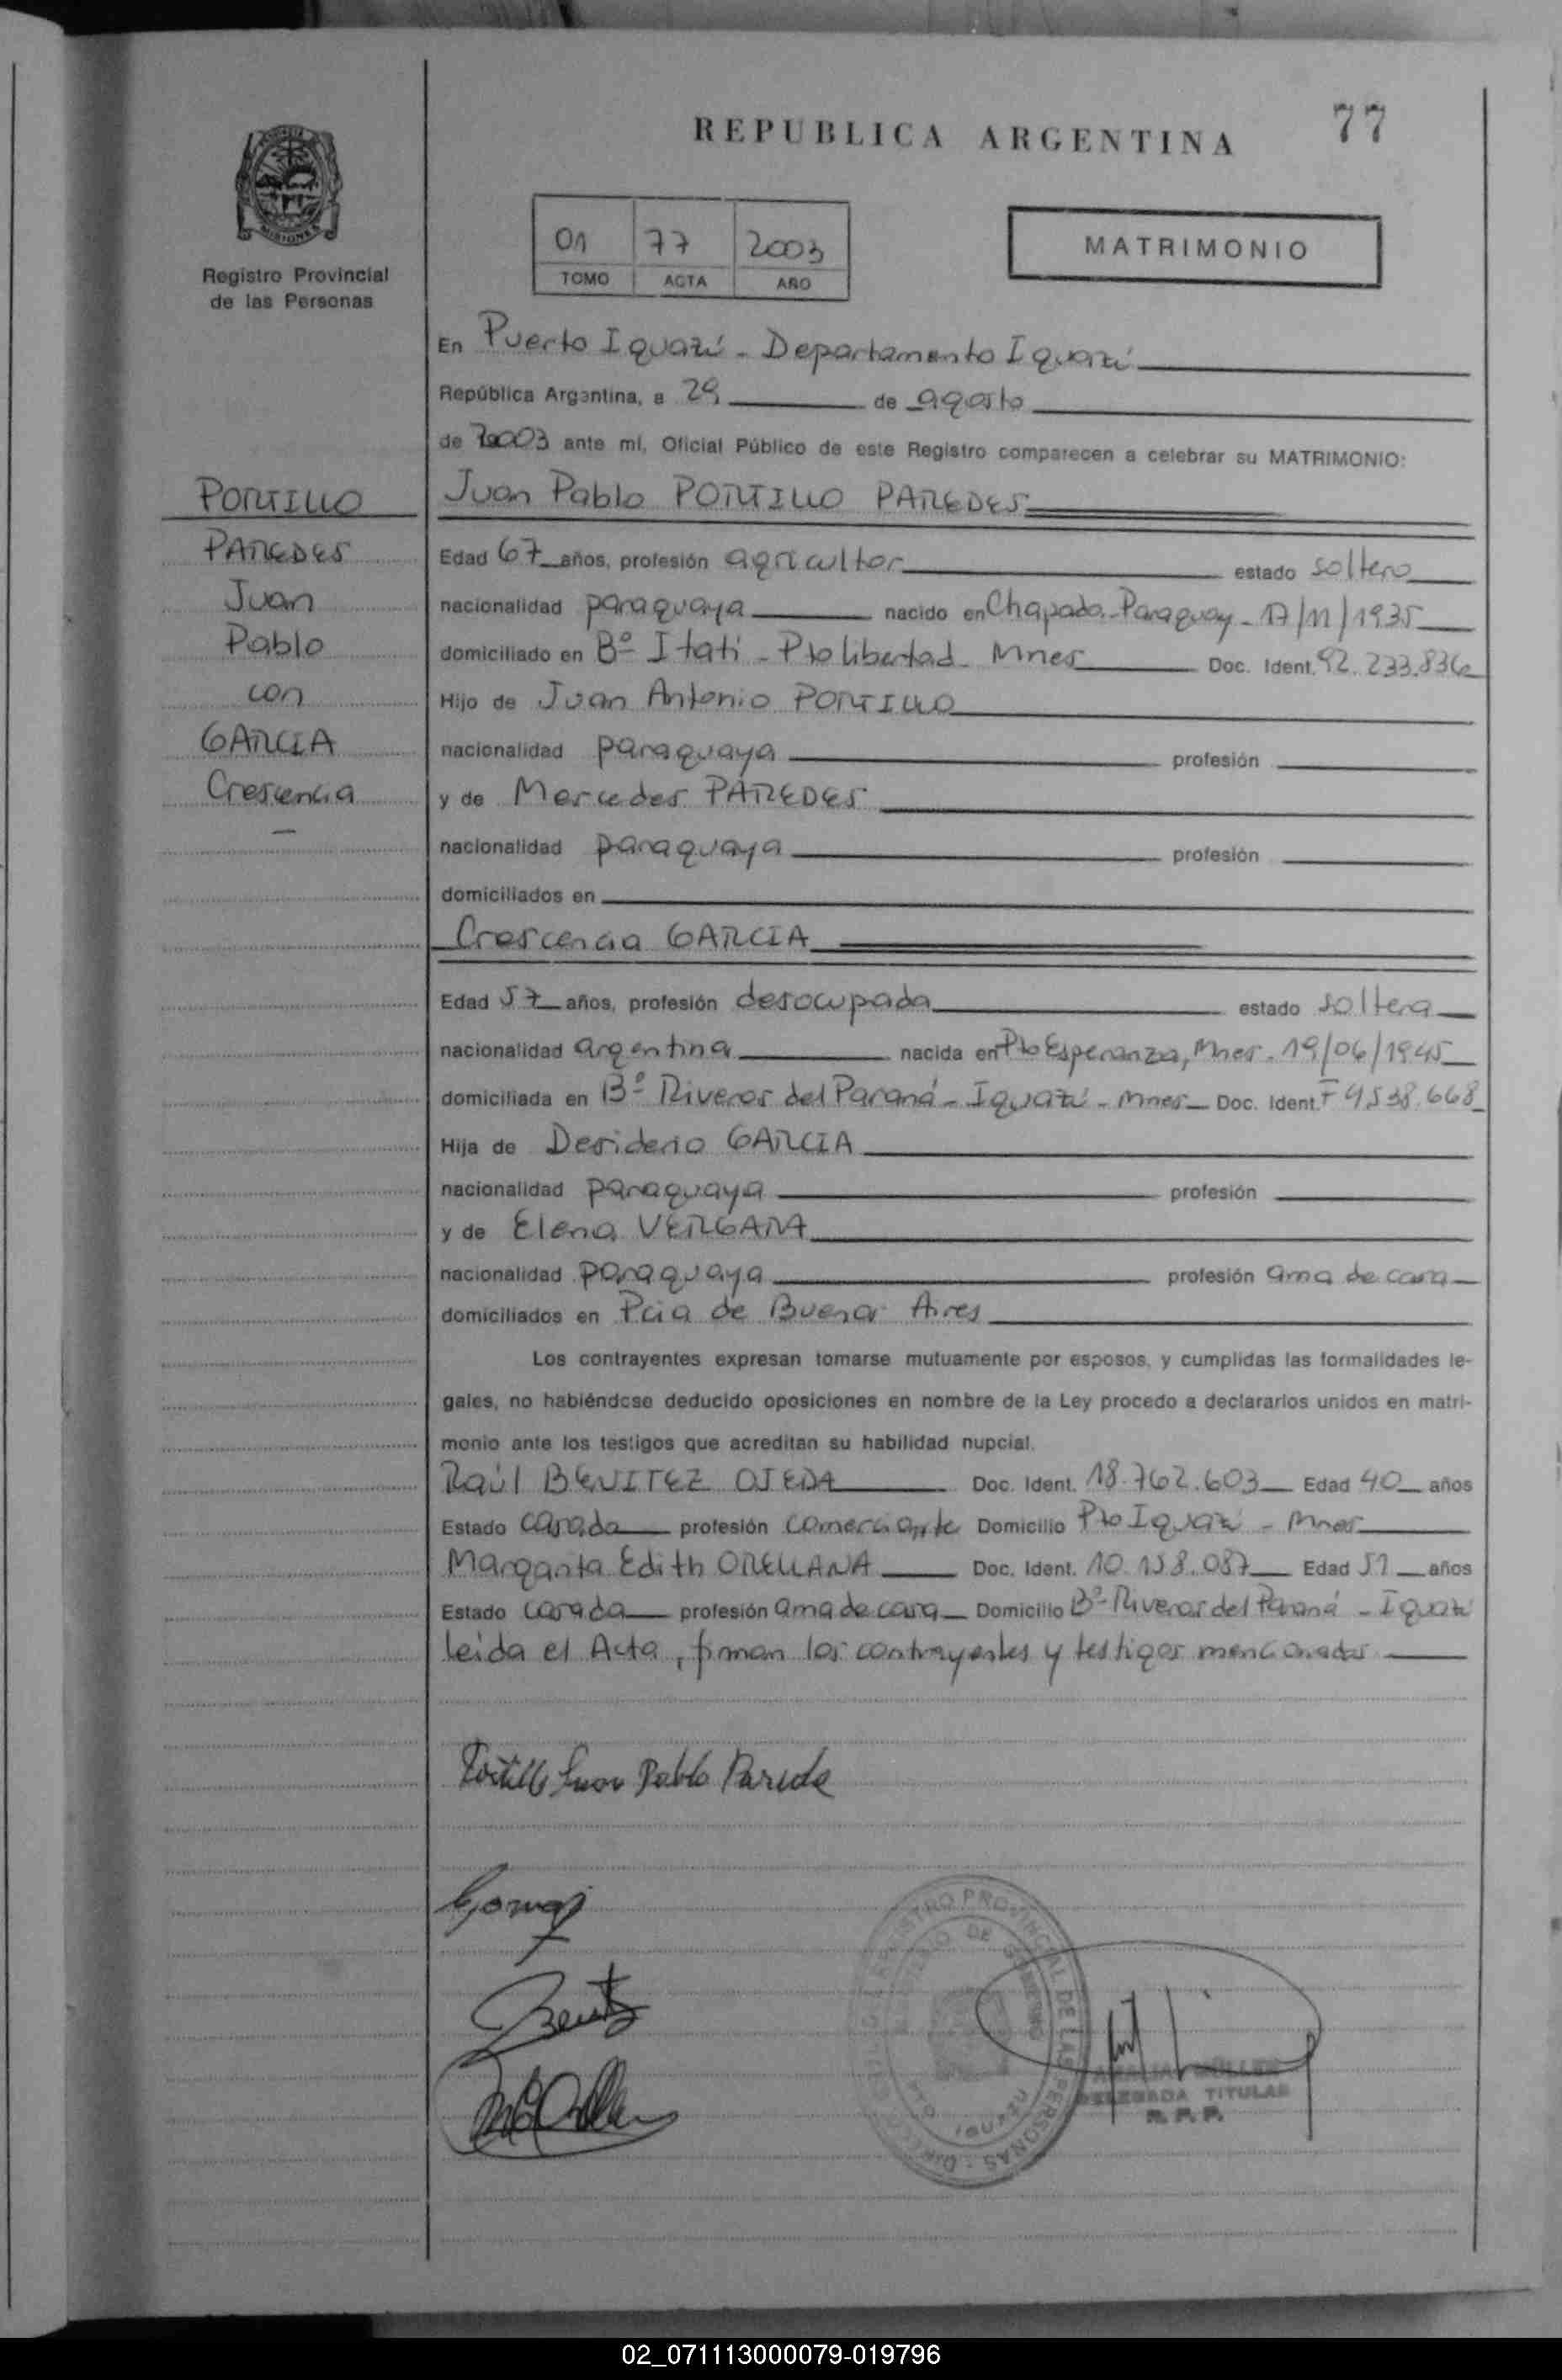 REPUBLICA ARGENTINA
77
MISIONES
Registro Provincial
de las Personas
01 77 2003
TOMO ACTA AÑO
MATRIMONIO
En Puerto Iguazú - Departamento Iguazú
República Argentina, a 29 de agosto
de 2003 ante mí, Oficial Público de este Registro comparecen a celebrar su MATRIMONIO:
PORTILLO
PAREDES
Juan
Pablo
con
GARCIA
Crescencia
Juan Pablo PORTILLO PAREDES
Edad 67 años, profesión agricultor estado soltero
nacionalidad paraguaya nacido en Chapado. Paraguay - 17/11/1935
domiciliado en Bº Itati - Pto libertad - Mnes Doc. Ident. 92.233.836
Hijo de Juan Antonio PORTILLO
nacionalidad paraguaya profesión
y de Mercedes PAREDES
nacionalidad paraguaya profesión
domiciliados en
Crescencia GARCIA
Edad 57 años, profesión desocupada estado soltera
nacionalidad argentina nacida en Pto Esperanza, Mnes - 19/06/1945
domiciliada en Bº Riveras del Paraná - Iguazú - Mnes Doc. Ident. F 4538.668
Hija de Desiderio GARCIA
nacionalidad paraguaya profesión
y de Elena VERGARA
nacionalidad paraguaya profesión ama de casa
domiciliados en Pcia de Buenos Aires
Los contrayentes expresan tomarse mutuamente por esposos, y cumplidas las formalidades le-
gales, no habiéndose deducido oposiciones en nombre de la Ley procedo a declararlos unidos en matri-
monio ante los testigos que acreditan su habilidad nupcial.
Raúl BENITEZ OJEDA Doc. Ident. 18.762.603 Edad 40 años
Estado casado profesión comerciante Domicilio Pto Iguazú - Mnes
Margarita Edith ORELLANA Doc. Ident. 10.158.087 Edad 51 años
Estado casada profesión ama de casa Domicilio Bº Riveras del Paraná - Iguazú
leída el Acta, firman los contrayentes y testigos mencionados
Portillo Juan Pablo Parede
DELEGADA TITULAR
R. P. P.
02_071113000079-019796